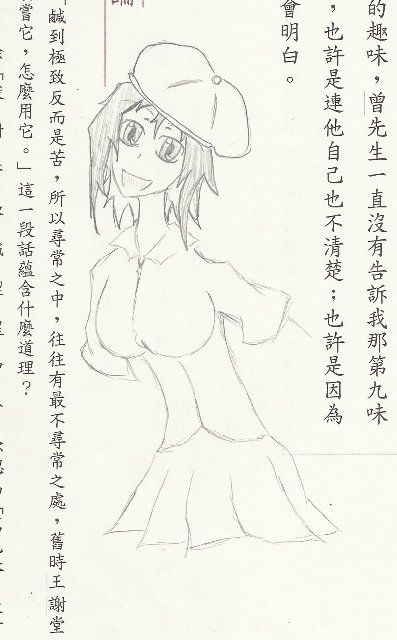 的趣味，曾先生一直沒有告訴我那第九味
，也許是連他自己也不清楚；也許是因為
會明白。
「鹹到極致反而是苦，所以尋常之中，往往有最不尋常之處，舊時王謝堂
嘗它，怎麼用它。」這一段話蘊含什麼道理？